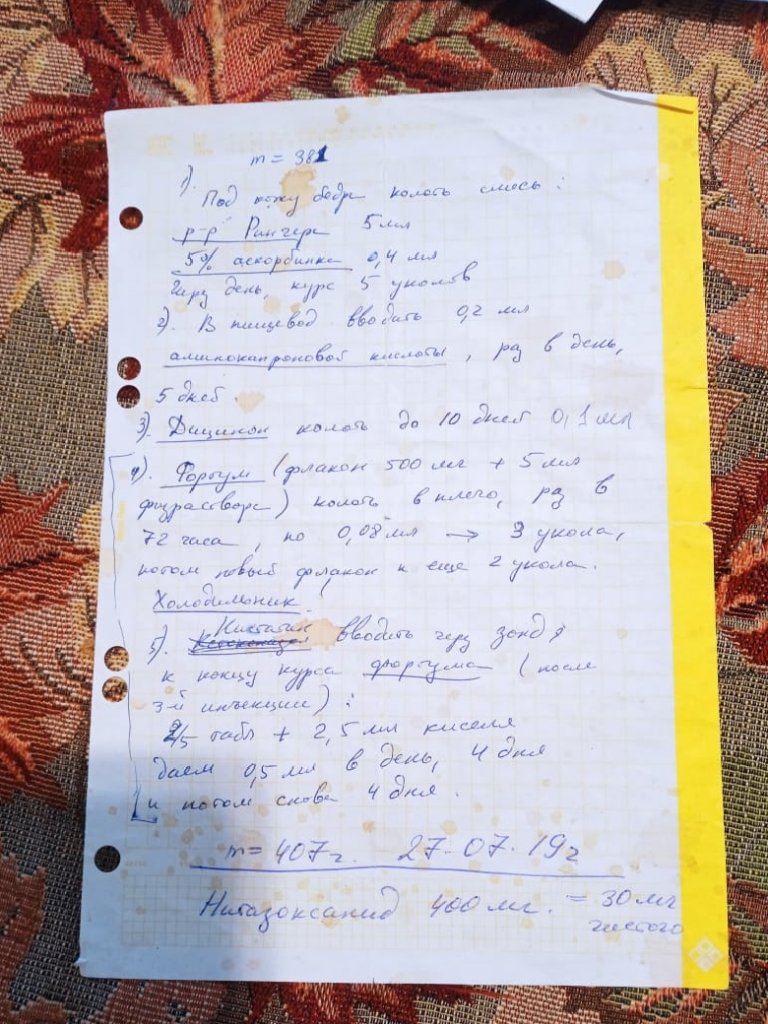 m = 381
1). Под кожу бедра колоть смесь:
р-р Рингера 5 мл
5% аскорбинка 0,4 мл
Через день, курс 5 уколов
2). В пищевод вводить 0,2 мл
аминокапроновой кислоты, раз в день,
5 дней.
3). Дицинон колоть до 10 дней 0,1 мл
4). Фортум (флакон 500 мг + 5 мл
физраствора) колоть в плечо, раз в
72 часа, по 0,08 мл → 3 укола,
потом новый флакон и еще 2 укола.
Холодильник!
Нистатин
5). вводить через зонд
к концу курса фортума (после
3-й инъекции):
2/5 табл + 2,5 мл киселя
даем 0,5 мл в день, 4 дня
и потом снова 4 дня.
m = 407 г. 27.07.19 г
Нитазоксанид 400 мг. = 30 мг
чистого